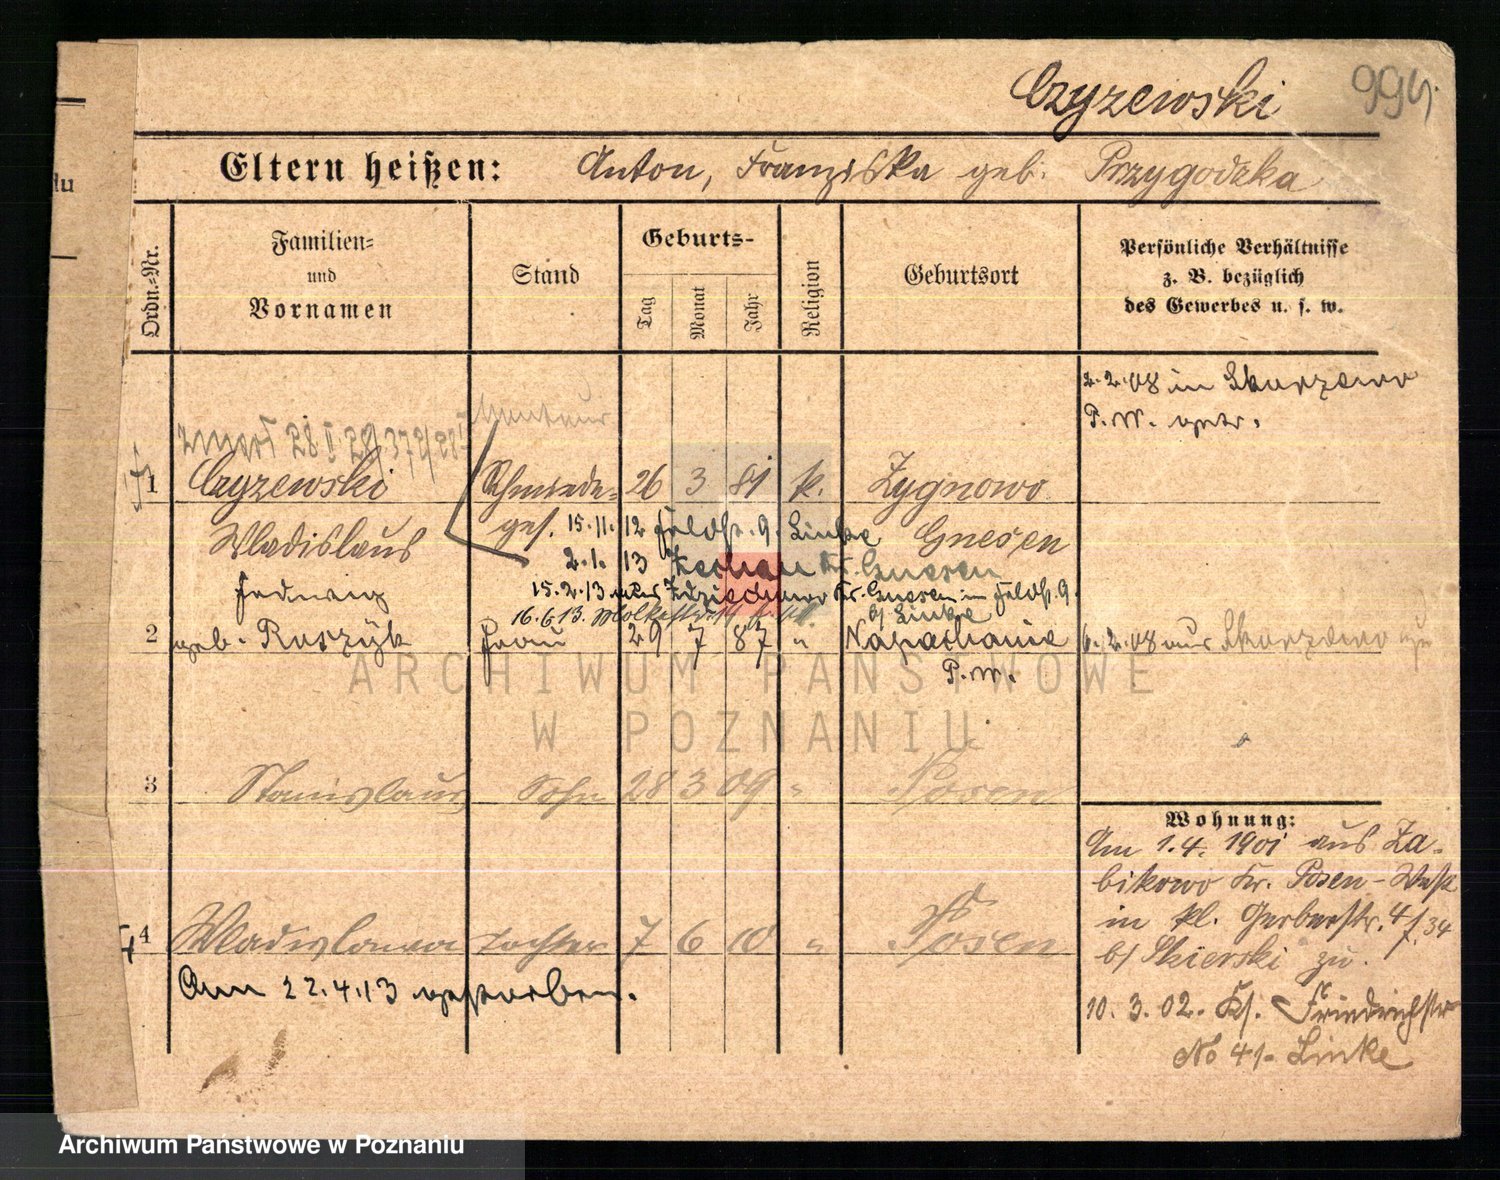 Czyzewski
994
Eltern heißen: Anton, Franziska geb. Przygodzka
Ordn.-Nr.
Familien-
und
Vornamen
Stand
Geburts-
Tag
Monat
Jahr
Religion
Geburtsort
Persönliche Verhältnisse
z. B. bezüglich
des Gewerbes u. s. w.
2.2.08 in Skorzewo
P.W. getr.
1 Czyzewski Schmiede- 26 3 81 k. Zygnowo
Wladislaus ges. 15.11.12 Feldstr. 9. Linke Gnesen
2.1.13 Kr. Gnesen
Hedwig 15.2.13 aus Kr. Gnesen in Feldstr. 9
16.6.13. Moltkestr. b/ Linke
2 geb. Roszyk Frau 29 7 87 " Napachanie 6.2.08 aus Skorzewo
P.W.
3 Stanislaus Sohn 28 3 09 " Posen
Wohnung:
Am 1.4.1901 aus Za-
bikowo Kr. Posen-West
in kl. Gerberstr. 4
b/ Skierski zu.
4 Wladislawa Tochter 7 6 10 " Posen
Am 22.4.13 gestorben.
10.3.02. Friedrichstr
No 41. Linke
ARCHIWUM PAŃSTWOWE
W POZNANIU
Archiwum Państwowe w Poznaniu